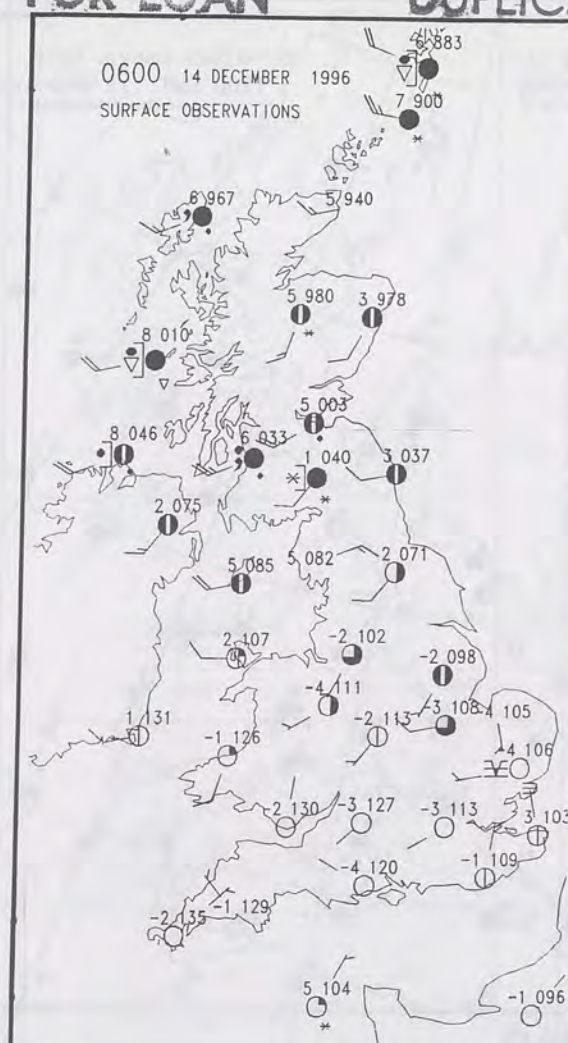 FOR LOAN DUPLIC
6 883
0600 14 DECEMBER 1996
SURFACE OBSERVATIONS
7 900
6 967
5 940
5 980
3 978
8 010
5 003
8 046
6 033
1 040
3 037
2 075
5 082
2 071
5 085
2 107
-2 102
-2 098
-4 111
-3 108
4 105
1 131
-1 126
-2 113
-4 106
-2 130
-3 127
-3 113
3 103
-1 109
-4 120
-1 129
-2 135
5 104
-1 096